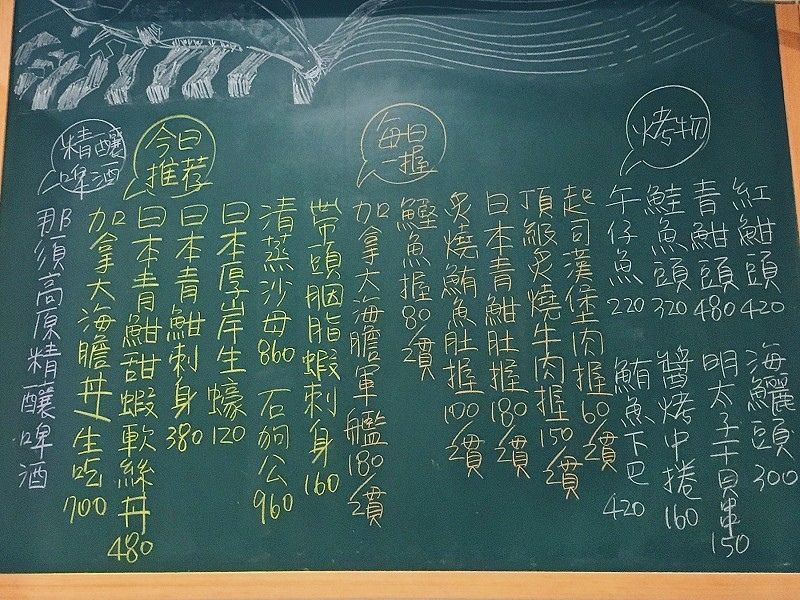 烤物
紅魽頭420
海鱺頭300
青魽頭480
明太子干貝串150
鮭魚頭320
醬烤中捲160
午仔魚220
鮪魚下巴420
每日一握
起司漢堡肉握60/貫
頂級炙燒牛肉握150/貫
日本青魽肚握180/貫
炙燒鮪魚肚握100/貫
鰹魚握80/貫
加拿大海膽軍艦180/貫
今日推荐
帶頭胭脂蝦刺身160
清蒸沙母860
石狗公960
日本厚岸生蠔120
日本青魽刺身380
日本青魽甜蝦軟絲丼480
加拿大海膽丼生吃700
精釀啤酒
那須高原精釀啤酒